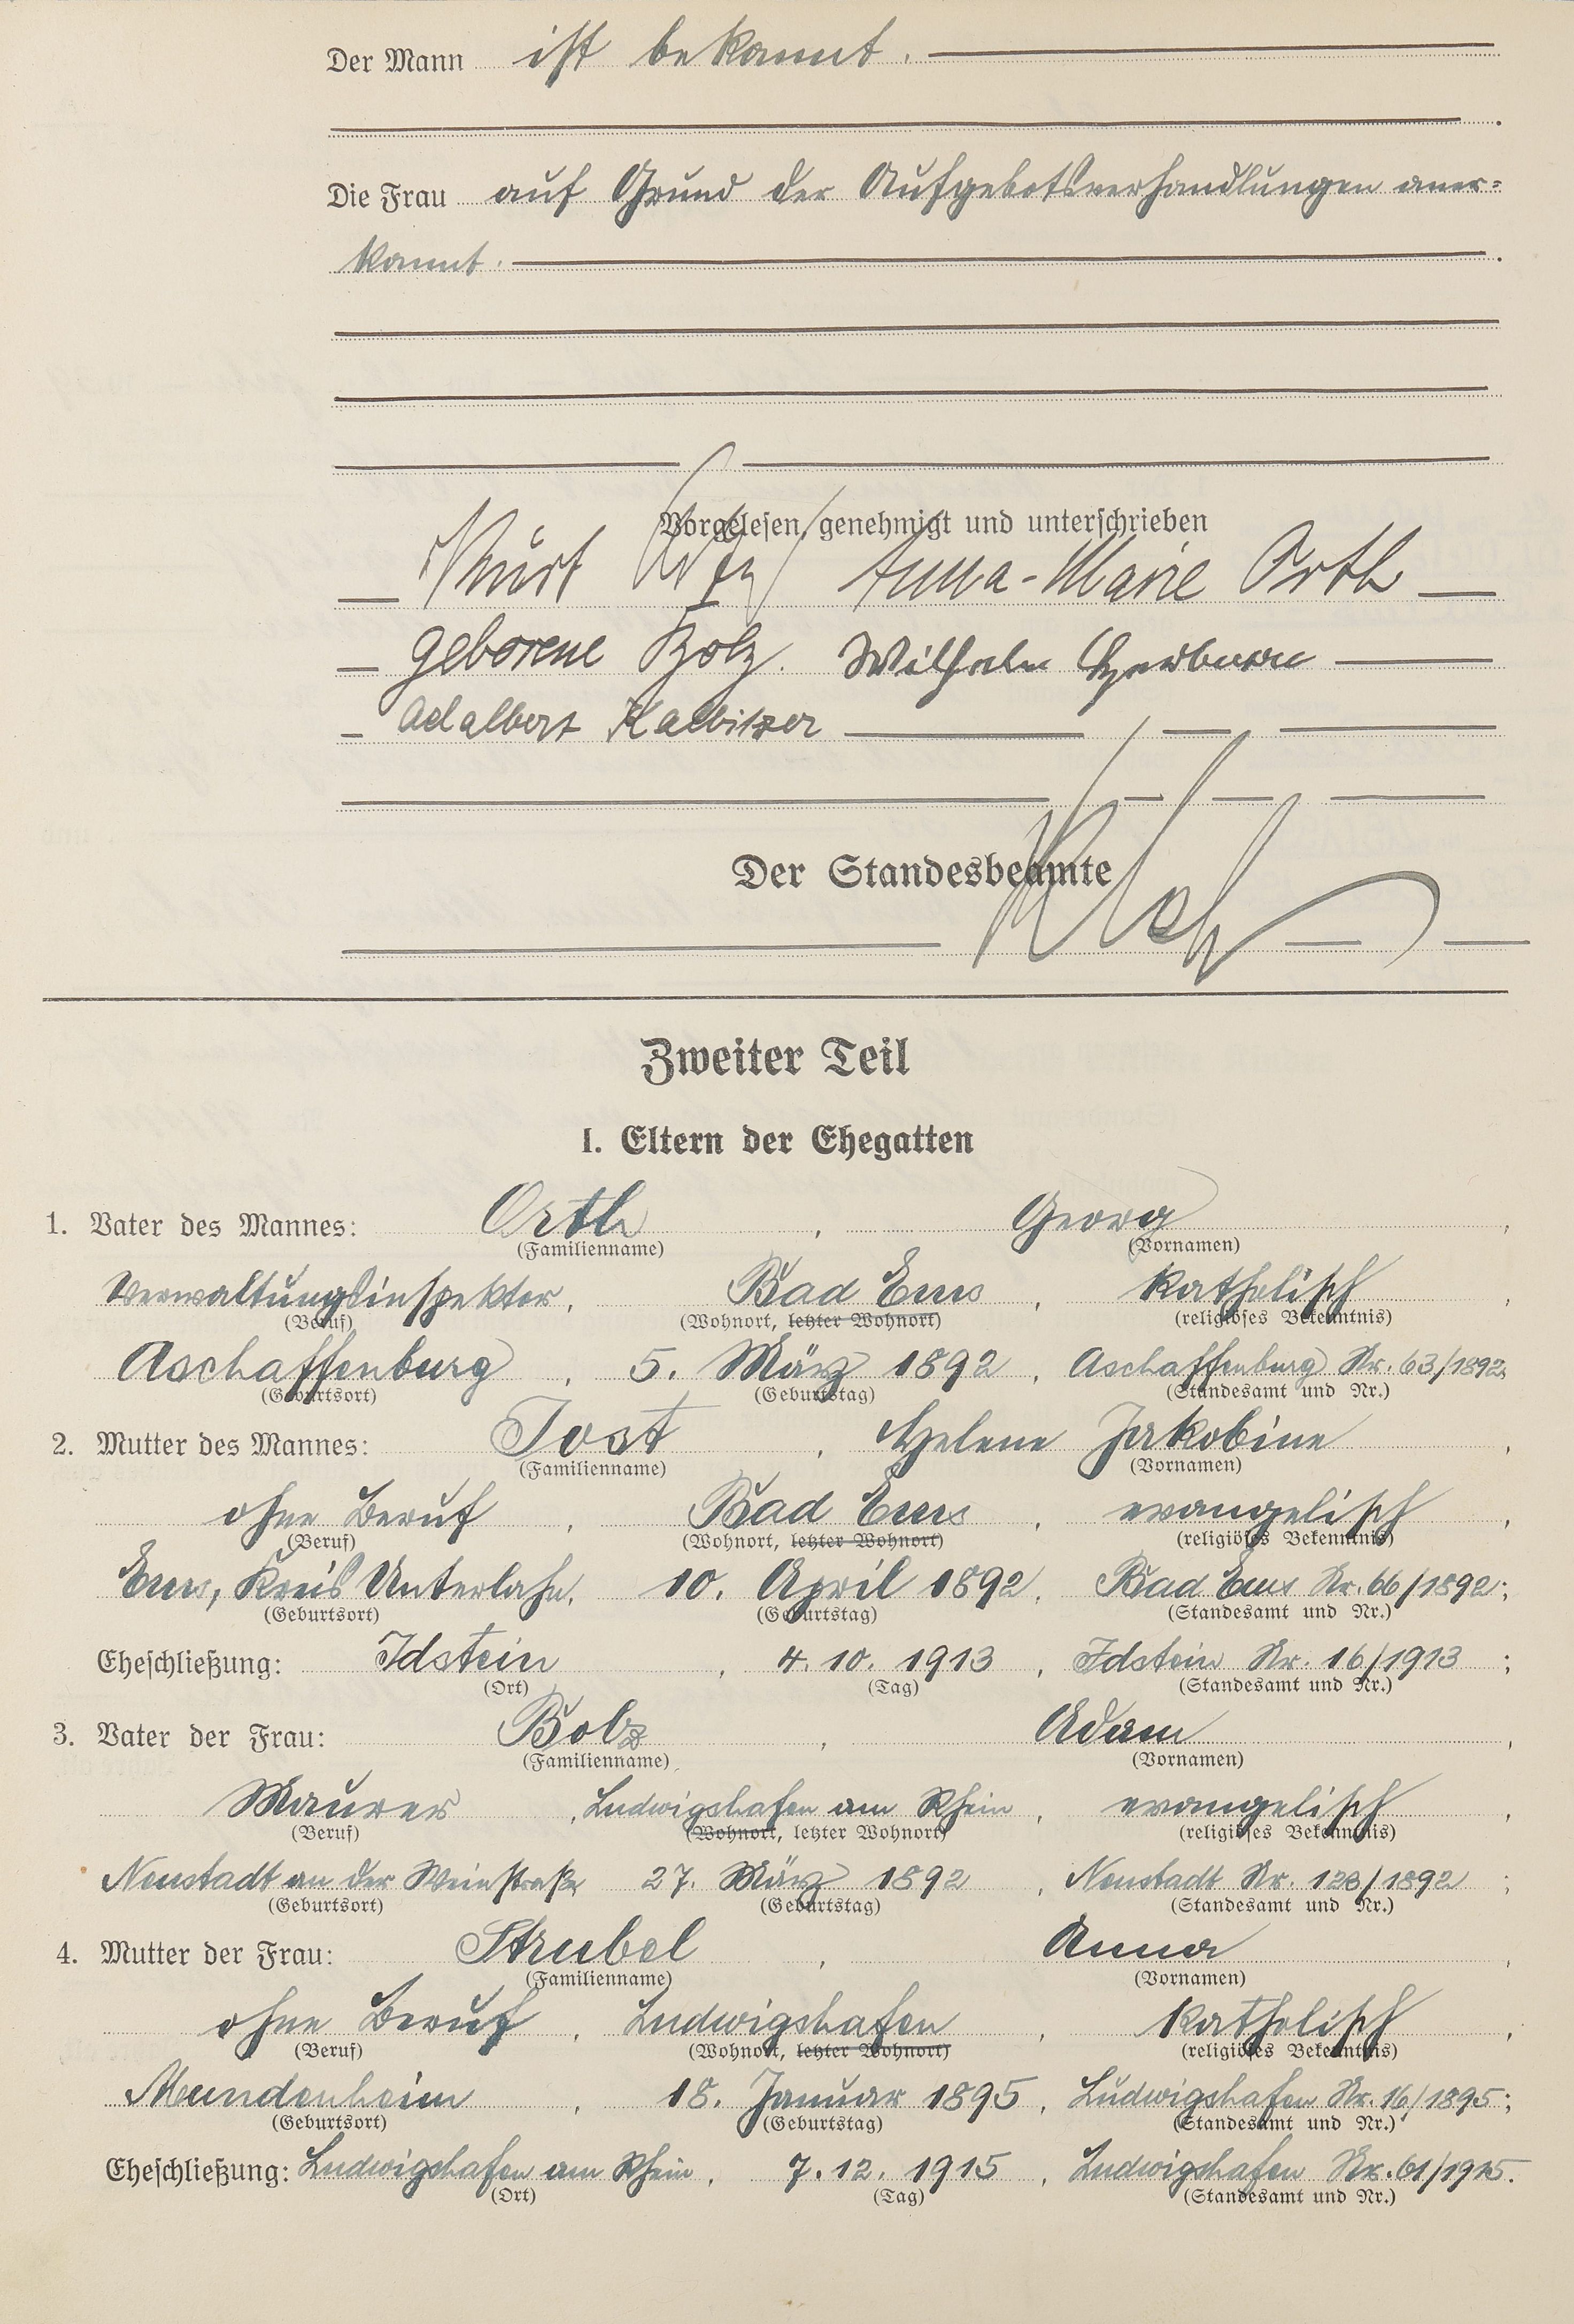 Der Mann ist bekannt.
Die Frau auf Grund der Aufgebotsverhandlungen aner-
kannt.
Vorgelesen, genehmigt und unterschrieben
Kurt Anna-Marie Orth
geborene Bolz. Wilhelm
Adalbert
Der Standesbeamte
Zweiter Teil
I. Eltern der Ehegatten
1. Vater des Mannes: Orth, Georg,
(Familienname) (Vornamen)
Verwaltungsinspektor, Bad Ems, katholisch,
(Beruf) (Wohnort, letzter Wohnort) (religiöses Bekenntnis)
Aschaffenburg, 5. März 1892, Aschaffenburg Nr. 63/1892;
(Geburtsort) (Geburtstag) (Standesamt und Nr.)
2. Mutter des Mannes: Jost, Helene Jakobine,
(Familienname) (Vornamen)
ohne Beruf, Bad Ems, evangelisch,
(Beruf) (Wohnort, letzter Wohnort) (religiöses Bekenntnis)
Ems, Kreis Unterlahn, 10. April 1892, Bad Ems Nr. 66/1892;
(Geburtsort) (Geburtstag) (Standesamt und Nr.)
Eheschließung: Idstein, 4. 10. 1913, Idstein Nr. 16/1913;
(Ort) (Tag) (Standesamt und Nr.)
3. Vater der Frau: Bolz, Adam,
(Familienname) (Vornamen)
Maurer, Ludwigshafen am Rhein, evangelisch,
(Beruf) (Wohnort, letzter Wohnort) (religiöses Bekenntnis)
Neustadt an der Weinstraße 27. März 1892, Neustadt Nr. 128/1892;
(Geburtsort) (Geburtstag) (Standesamt und Nr.)
4. Mutter der Frau: Strubel, Anna,
(Familienname) (Vornamen)
ohne Beruf, Ludwigshafen, katholisch,
(Beruf) (Wohnort, letzter Wohnort) (religiöses Bekenntnis)
Mundenheim, 18. Januar 1895, Ludwigshafen Nr. 16/1895;
(Geburtsort) (Geburtstag) (Standesamt und Nr.)
Eheschließung: Ludwigshafen am Rhein, 7. 12. 1915, Ludwigshafen Nr. 61/1915.
(Ort) (Tag) (Standesamt und Nr.)